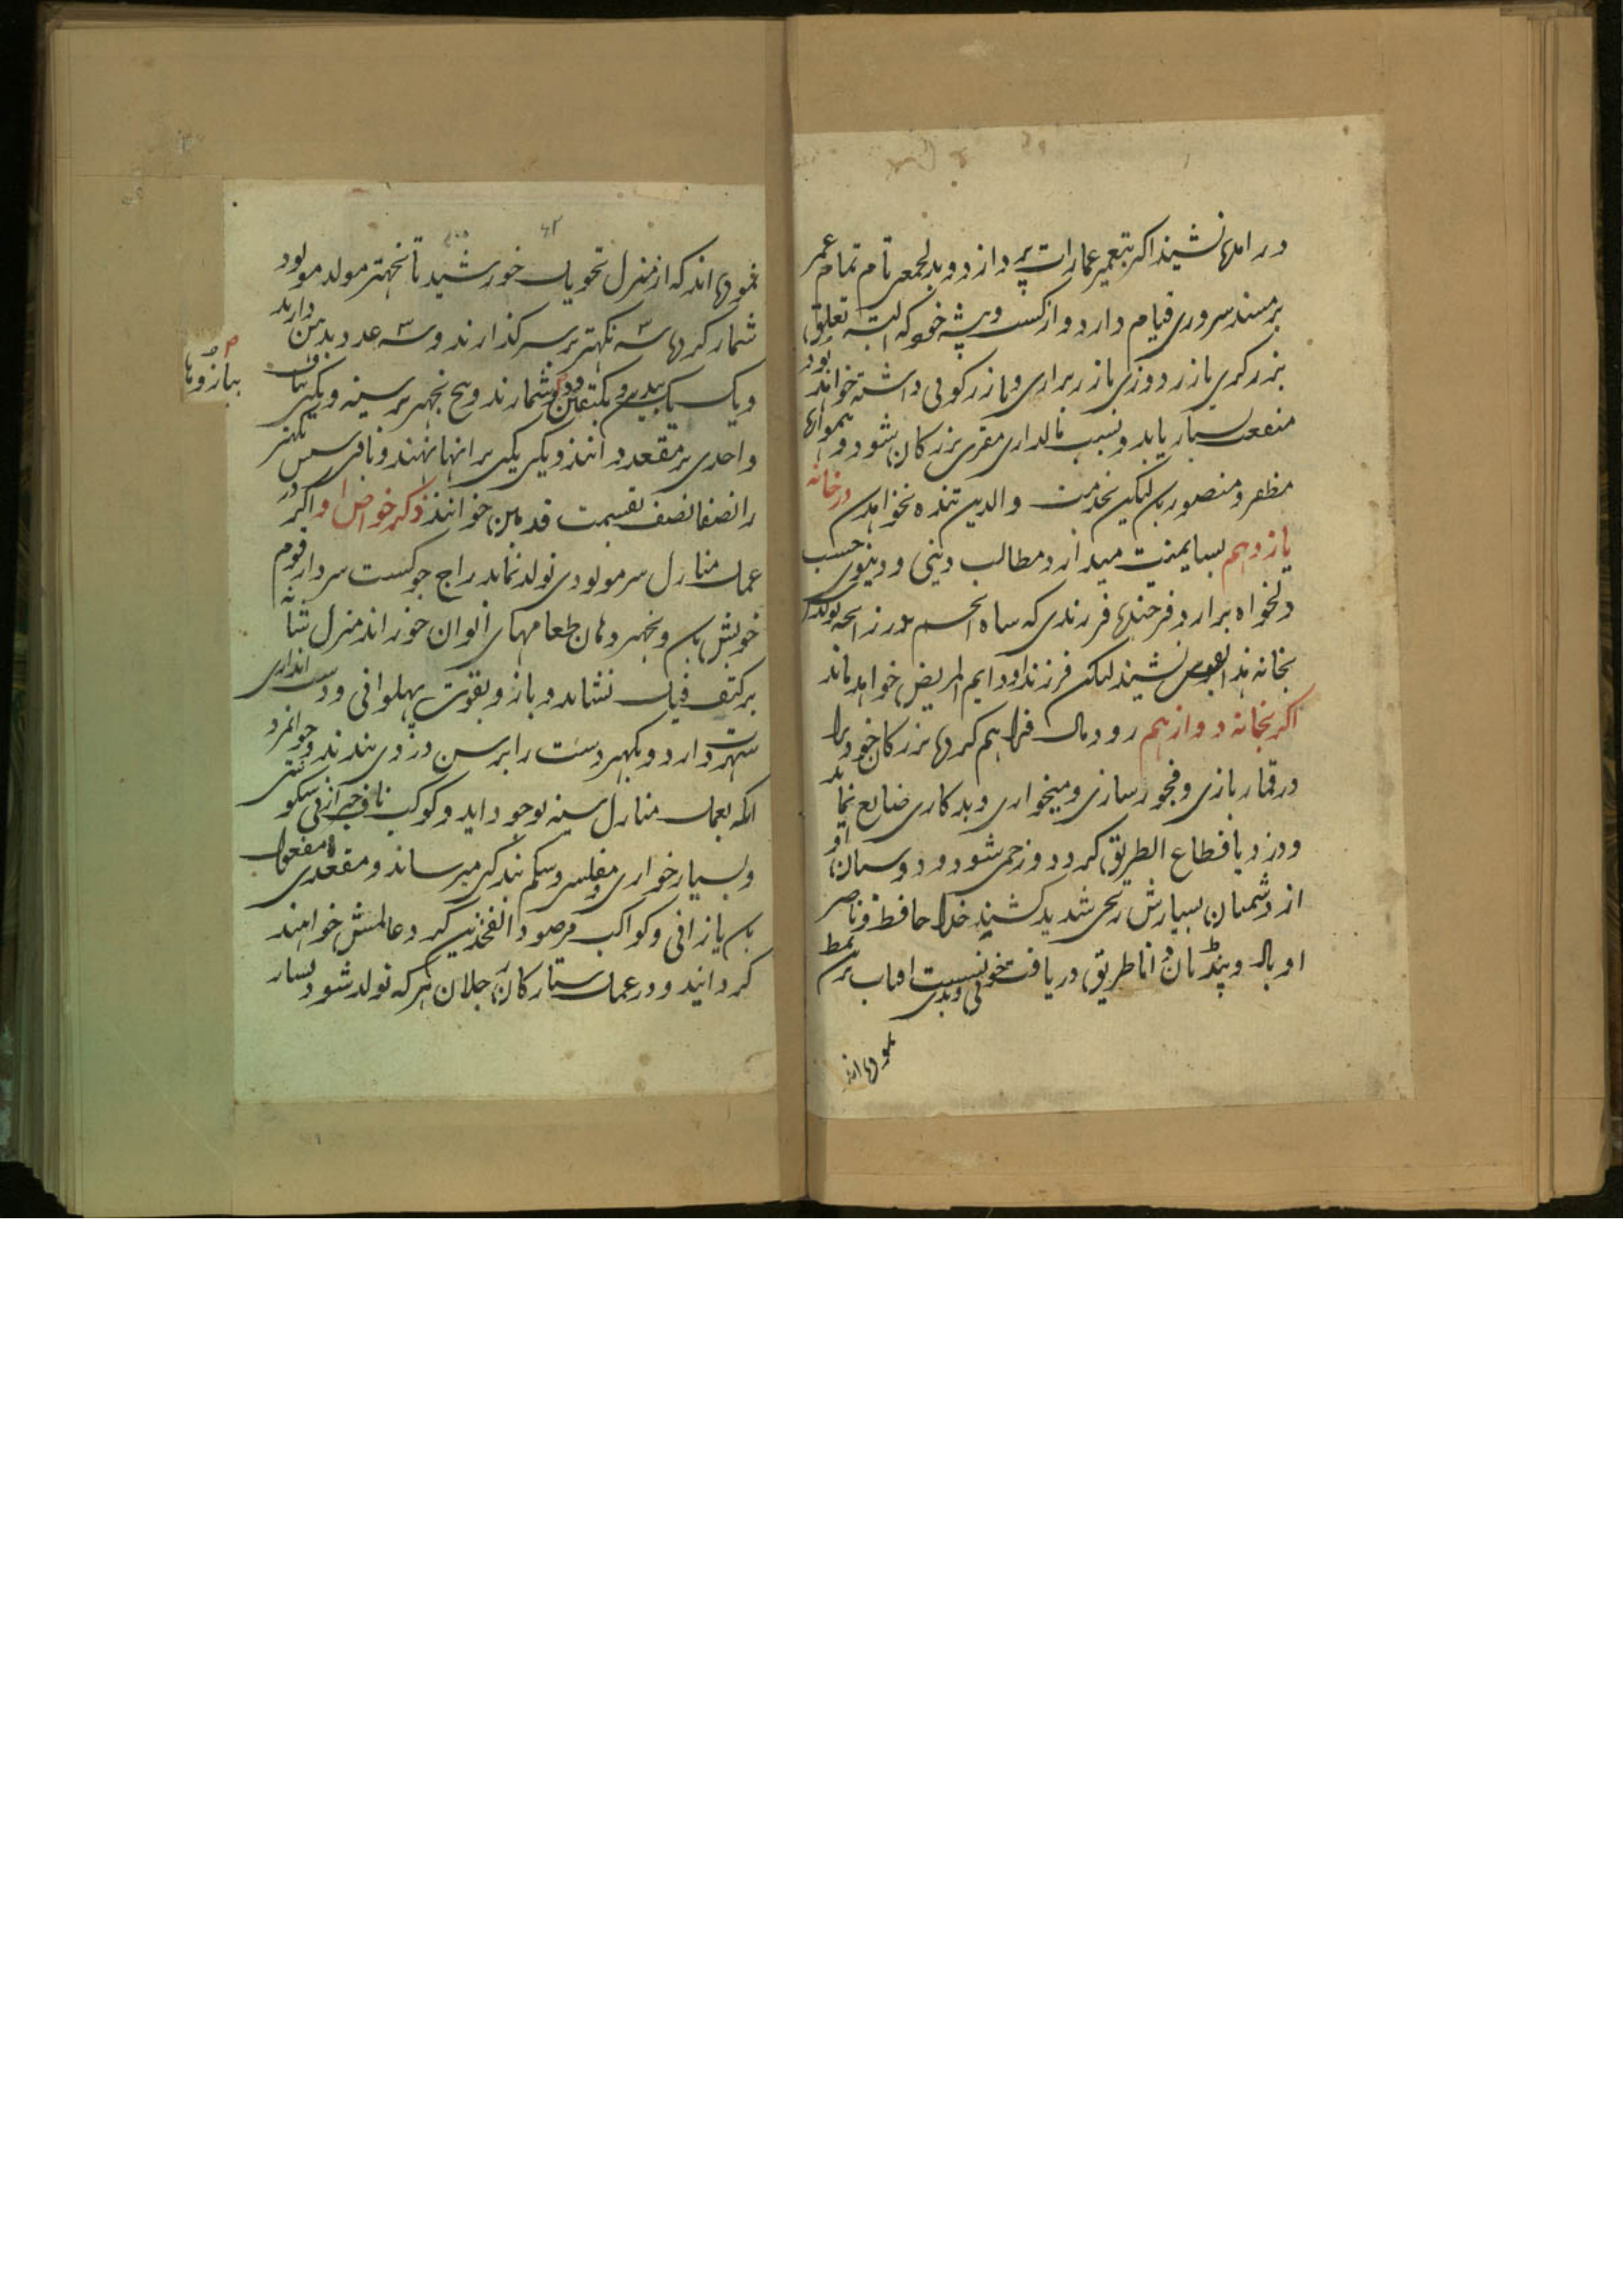 در املها نشیند اکر بتعمیر عمارات پردازد و بدلجمعی تام تمام عمر
بر مسند سروری قیام دارد و از کسب و پیشه خود که البته تعلق
بزرگری یا زردوزی یا زربرداری و یا زرکوبی داشته خواند بود
منفعت بسیار یابد و بسبب مالداری مقری بزرکان شود و همواره
مظفر و منصور بان لیکن بخدمت والدین تنده نخواهدن در خانه
یازدهم بسا یمنیت میدارد مطالب دینی و دنیوی حسب
دلخواه برارد فرخنده فرزندی که شاه انجم در زایجه تولد
بخانه هذا بقوس نشیند لیکن فرزند او دایم المریض خواهد ماند
اکر بخانه دوازدهم رود مال فراهم کرده بزرکان خود را
در قمار بازی و فجور سازی و میخواری و بدکاری ضایع نماید
و دزد یا قطاع الطریق کردد و زخمی شود و دوستان او
از دشمنان بسیارش رنجی شدید کشند خدا حافظ و ناصر
او باد و پنڈتان دانا طریق دریافت خوبی و بدی نسبت افتاب برین نمط
نموده اند
۴۲
نموده اند که از منزل تحویل خورشید تا نچهتر مولد مولود
شمار کرده سه نکهتر بر سر کذارند و سه عدد بدهن دارند
و یک یک بید و بکتفین شمارند و پنج نچهتر بر سینه و یکی بناف
ببازوها
واحدی بر مقعد دانند و یکی یکی برانها نهند و باقی سپس نکهتر
را نصفا نصف تقسیمت قدمین خوانند ذکر خواص او اکر در
عمل منازل سر مولودی تولد نماید راج جوکست سردار قوم
خویش بان و نچهتر دهان طعامهای الوان خوراند منزل شانه
بر کتف فیل نشاند و بازو بقوت پهلوانی و دست اندازی
شهرت دارد و نکهتر دست را برسن دزدی بندند و جوانمرد
انکه بعمل منازل سینه بوجود اید و کوکب ناف خبر از نیکویی
و بسیار خواری و مفلسی و شکم بندگی میرساند و مقعدی مفعول
بان یا زانی و کواکب مرصود الفخذین کرد عالمش خواهند
کردانید و در عمل ستارکان رجلان هرکه تولد شود بسیار